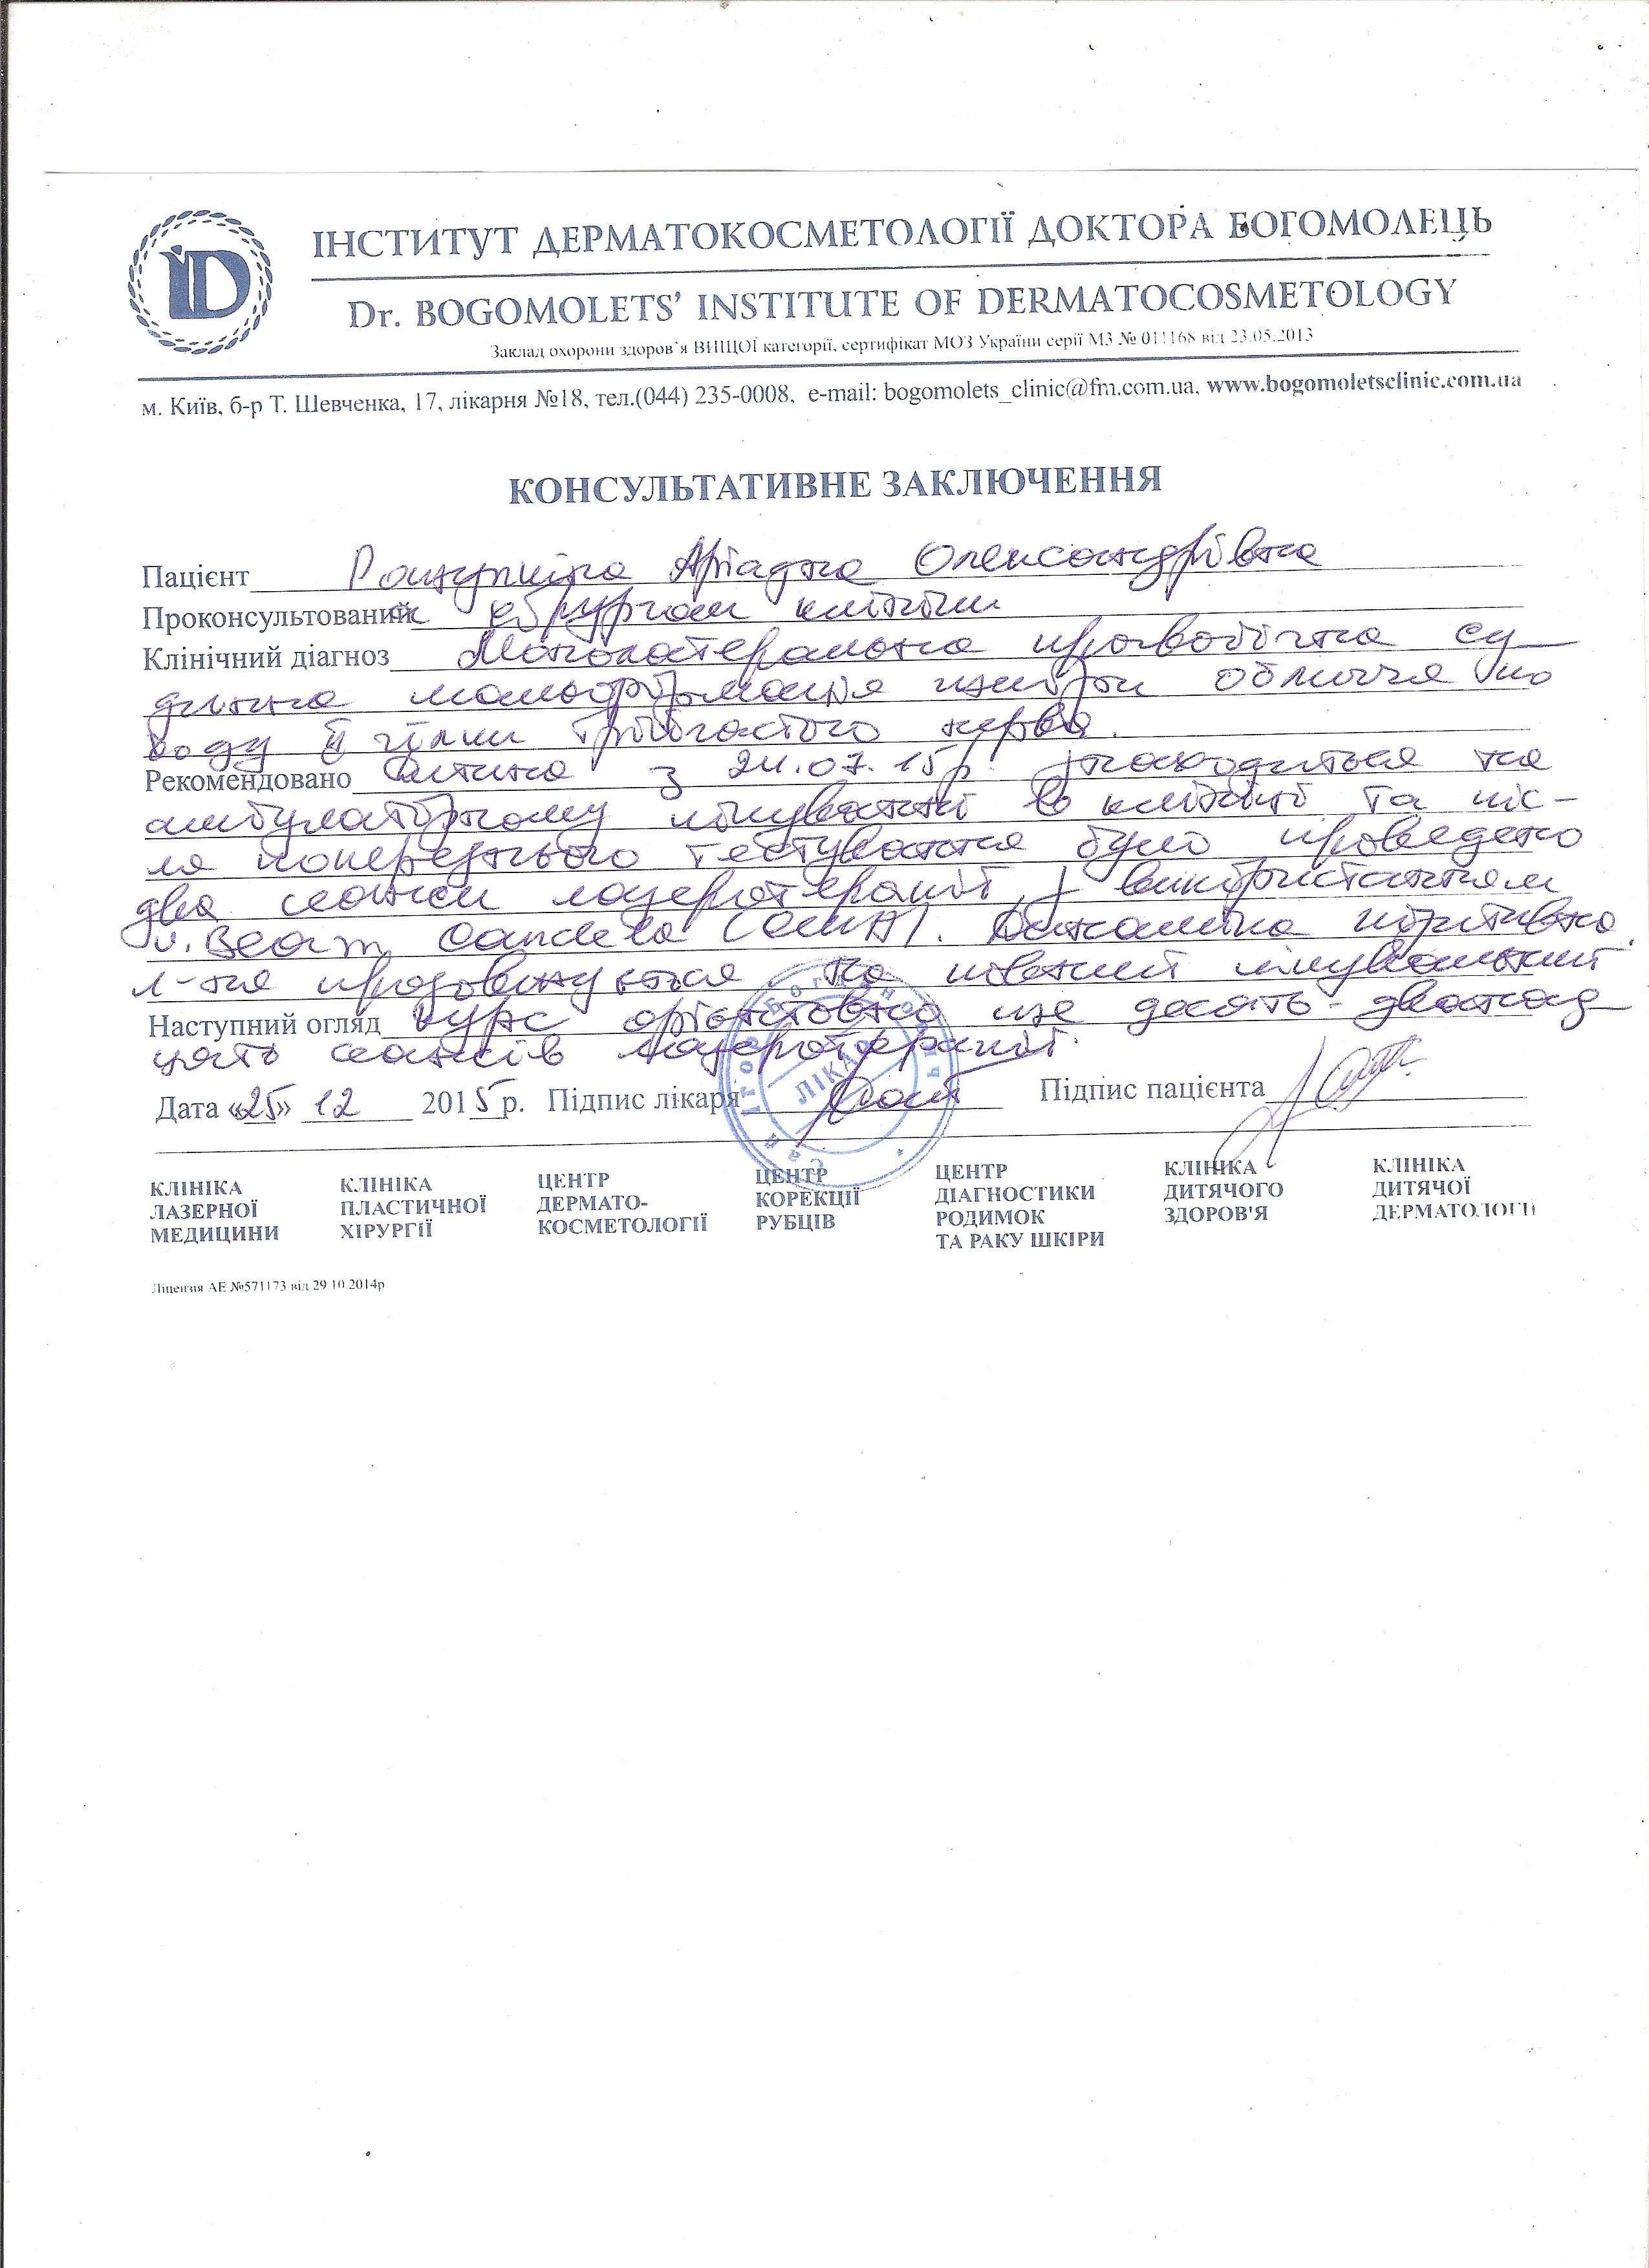 ІНСТИТУТ ДЕРМАТОКОСМЕТОЛОГІЇ ДОКТОРА БОГОМОЛЕЦЬ
Dr. BOGOMOLETS' INSTITUTE OF DERMATOCOSMETOLOGY
Заклад охорони здоров'я ВИЩОЇ категорії, сертифікат МОЗ України серії МЗ № 011168 від 23.05.2013
м. Київ, б-р Т. Шевченка, 17, лікарня №18, тел.(044) 235-0008, e-mail: bogomolets_clinic@fm.com.ua, www.bogomoletsclinic.com.ua
КОНСУЛЬТАТИВНЕ ЗАКЛЮЧЕННЯ
Пацієнт Ращупкіна Аріадна Олександрівна
Проконсультований хірургом клініки
Клінічний діагноз Монолатеральна правобічна су-
динна мальформація шкіри обличчя по
ходу II гілки трійчастого нерва.
Рекомендовано Дитина з 24.07.15р. знаходиться на
амбулаторному лікуванні в клініці та піс-
ля попереднього тестування було проведено
два сеанси лазеротерапії з використанням
v. Beam Candela (США). Динаміка позитивна
л-ня продовжується. На повний лікувальний
Наступний огляд курс орієнтовно ще десять-дванад-
цять сеансів лазеротерапії.
Дата «25» 12 2015 р. Підпис лікаря Підпис пацієнта
Сап Ігор Богданович
ЛІКАР
КЛІНІКА ЛАЗЕРНОЇ МЕДИЦИНИ
КЛІНІКА ПЛАСТИЧНОЇ ХІРУРГІЇ
ЦЕНТР ДЕРМАТО-КОСМЕТОЛОГІЇ
ЦЕНТР КОРЕКЦІЇ РУБЦІВ
ЦЕНТР ДІАГНОСТИКИ РОДИМОК ТА РАКУ ШКІРИ
КЛІНІКА ДИТЯЧОГО ЗДОРОВ'Я
КЛІНІКА ДИТЯЧОЇ ДЕРМАТОЛОГІЇ
Ліцензія АЕ №571173 від 29.10.2014р